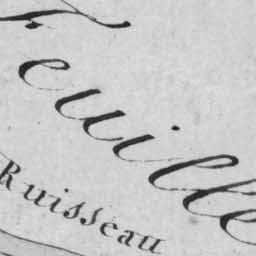 Feuille
Ruisseau